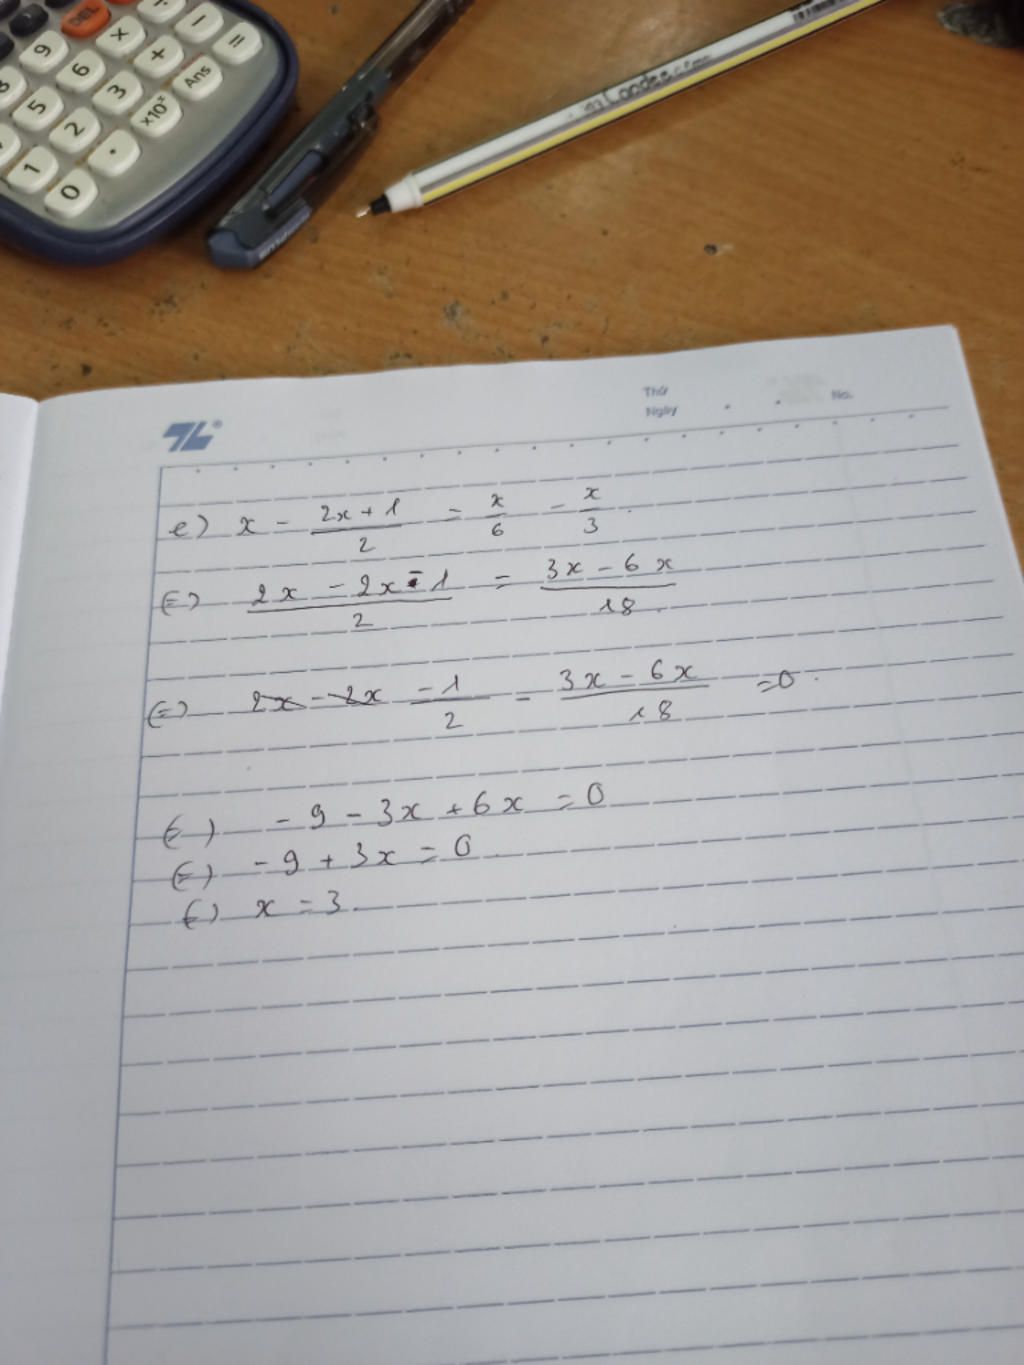 DEL
9 × ÷
8 6 + −
5 3 Ans =
2 ×10ˣ
1 .
0
Thứ
Ngày No.
TL®
e) x - (2x + 1)/2 = x/6 - x/3.
(=) (2x - 2x - 1)/2 = (3x - 6x)/18.
(=) 2x - 2x -1/2 - (3x - 6x)/18 = 0.
(=) -9 - 3x + 6x = 0
(=) -9 + 3x = 0.
(=) x = 3.